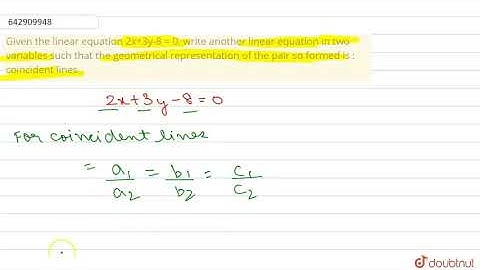 642909948
Given the linear equation 2x+3y-8 = 0, write another linear equation in two
variables such that the geometrical representation of the pair so formed is :
coincident lines
2x+3y-8=0
For coincident lines
= a1/a2 = b1/b2 = c1/c2
doubtnut